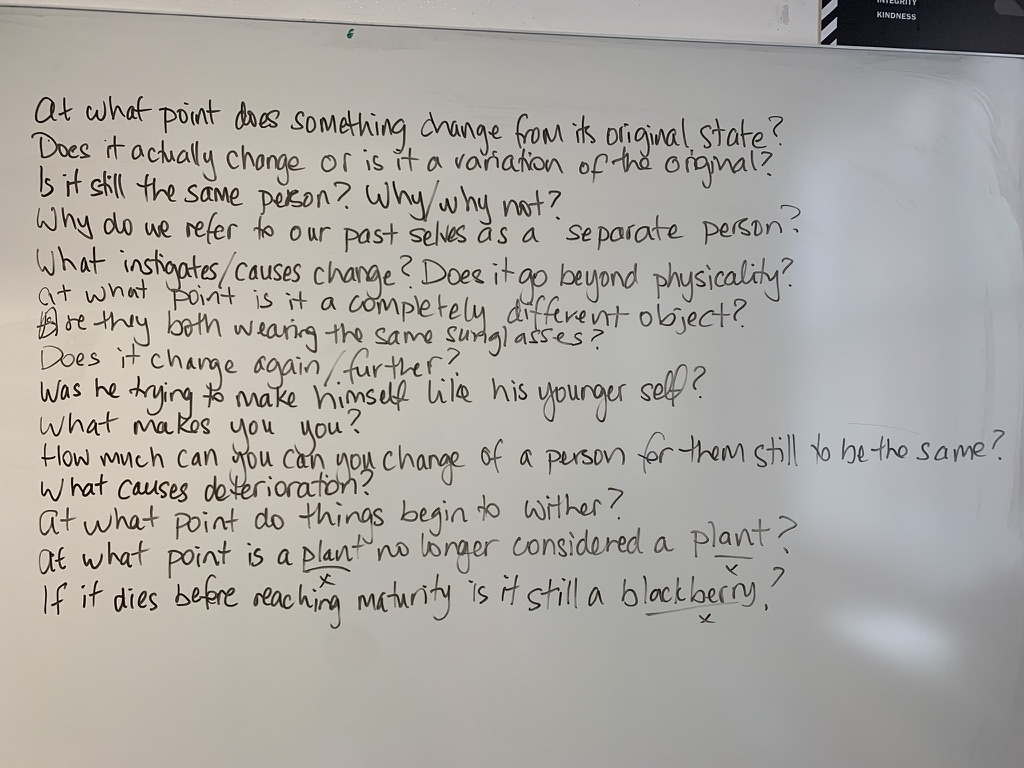 INTEGRITY
KINDNESS
At what point does something change from its original state?
Does it actually change or is it a variation of the original?
Is it still the same person? Why/why not?
Why do we refer to our past selves as a separate person?
What instigates/causes change? Does it go beyond physicality?
At what point is it a completely different object?
Are they both wearing the same sunglasses?
Does it change again/further?
Was he trying to make himself like his younger self?
What makes you you?
How much can you can you change of a person for them still to be the same?
What causes deterioration?
At what point do things begin to wither?
At what point is a plant no longer considered a plant?
x x
If it dies before reaching maturity is it still a blackberry?
x